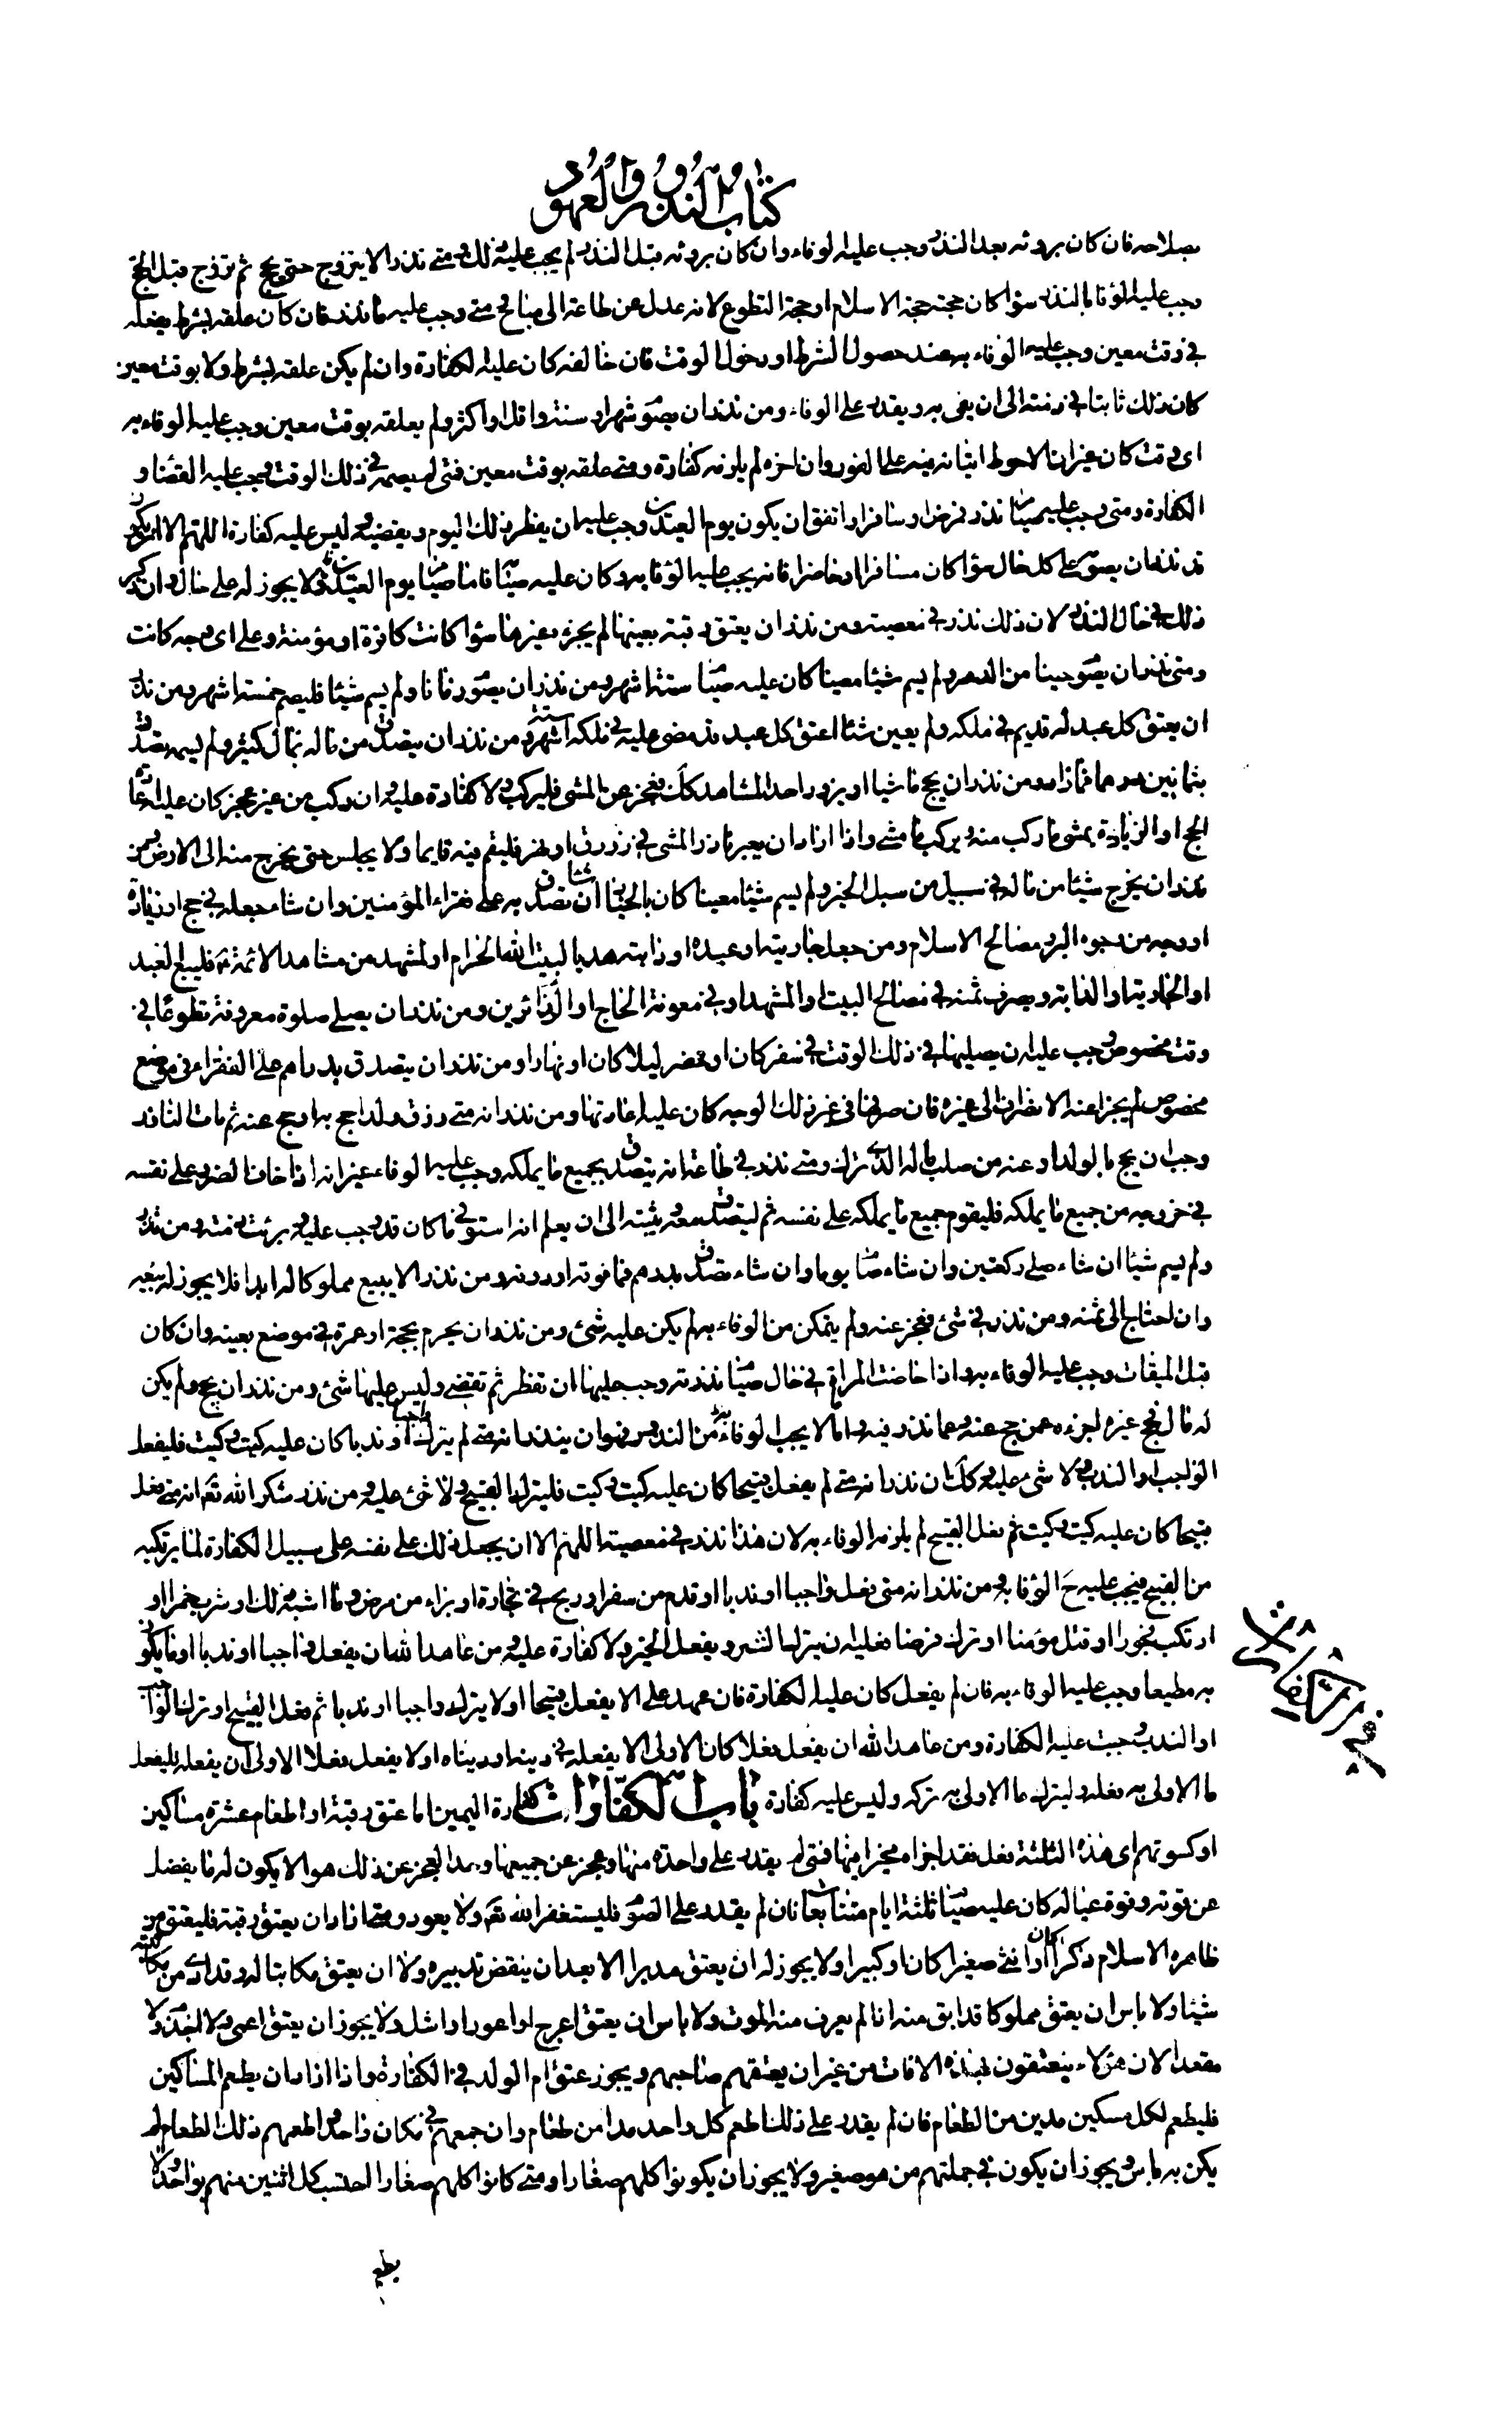 كتاب النذور والعهود
بصلاحه فان كان برؤه بعد النذر وجب عليه الوفاء وان كان برؤه قبل النذر لم يجب عليه ذلك ومتى نذر الا يتزوج حتى يحج ثم تزوج قبل الحج
وجب عليه الوفا بالنذر سوا كان حجته حجة الاسلام او حجة التطوع لانه عدل عن طاعة الى مباح متى وجب عليه ما نذر فان كان علقه بشرط يفعله
في وقت معين وجب عليه الوفاء به عند حصول الشرط او دخول الوقت فان خالفه كان عليه الكفارة وان لم يكن علقه بشرط ولا بوقت معين
كان ذلك ثابتا في ذمته الى ان يفى به ويقدر على الوفاء ومن نذر ان يصوم شهرا او سنة او اقل او اكثر ولم يعلقه بوقت معين وجب عليه الوفاء به
اى وقت كان غير ان الاحوط اتيانه به على الفور وان اخره لم يلزمه كفارة ومتى علقه بوقت معين فمتى لم يصمه في ذلك الوقت وجب عليه القضاء و
الكفارة ومتى وجب عليه صيام نذر فمرض او سافر او اتفق ان يكون يوم العيدين وجب عليه ان يفطر ذلك اليوم ويقضيه وليس عليه كفارة اللهم الا ان يكون
قد نذر ان يصوم على كل حال سوا كان مسافرا او حاضرا فانه يجب عليه الوفا به وكان عليه صيامه فاما صيام يوم العيدين فلا يجوز له على حال وان ذكر
ذلك في حال النذر لان ذلك نذر في معصية ومن نذر ان يعتق رقبة بعينها لم يجزه غيرها سوا كانت كافرة او مؤمنة وعلى اى وجه كانت
ومتى نذر ان يصوم حينا من الدهر ولم يسم شيئا معينا كان عليه صيام ستة اشهر ومن نذر ان يصوم زمانا ولم يسم شيئا فليصم خمسة اشهر ومن نذر
ان يعتق كل عبد له قديم في ملكه ولم يعين شيئا اعتق كل عبد قد مضى عليه في ملكه ستة اشهر ومن نذر ان يتصدق من ماله بمال كثير ولم يسم تصدق
بثمانين درهما فما زاد ومن نذر ان يحج ماشيا او يزور احد المشاهد كك فعجز عن المشى فليركب ولا كفارة عليه وان ركب من غير عجز كان عليه اعادة
الحج او الزيادة يمشى ما ركب منه ويركب ما مشى واذا اراد ان يعبر ناذر المشى في زورق او نهر فليقم فيه قايما ولا يجلس حتى يخرج منه الى الارض ومن
نذر ان يخرج شيئا من ماله في سبيل من سبل الخير ولم يسم شيئا معينا كان بالخيار ان شاء تصدق به على فقراء المؤمنين وان شاء جعله في حج او زيارة
او وجه من وجوه البر ومصالح الاسلام ومن جعل جاريته او عبده او دابته هديا لبيت الله الحرام او لمشهد من مشاهد الائمة ع فليبع العبد
او الجارية او الدابة ويصرف ثمنه في مصالح البيت او المشهد او في معونة الحاج او الزائرين ومن نذر ان يصلى صلوة معروفة تطوعا في
وقت مخصوص وجب عليه ان يصليها في ذلك الوقت في سفر كان او حضر ليلا كان او نهارا ومن نذر ان يتصدق بدراهم على الفقراء في موضع
مخصوص لم يجز عنه الانصراف الى غيره فان صرفها في غير ذلك الوجه كان عليه اعادتها ومن نذر انه متى رزق ولدا حج به او حج عنه ثم مات الناذر
وجب ان يحج بالولد او عنه من صلب ماله الذى ترك ومتى نذر في طاعة انه يتصدق بجميع ما يملكه وجب عليه الوفاء غير انه اذا خاف الضرر على نفسه
في خروجه من جميع ما يملكه فليقوم جميع ما يملكه على نفسه ثم ليتصدق معه ويثبته الى ان يعلم انه استوفى ما كان قد وجب عليه وبرئت ذمته ومن نذر
ولم يسم شيئا ان شاء صلى ركعتين وان شاء صام يوما وان شاء تصدق بدرهم فما فوته او دونه ومن نذر الا يبيع مملوكا له ابدا فلا يجوز له بيعه
وان احتاج الى ثمنه ومن نذر في شئ فعجز عنه ولم يتمكن من الوفاء به لم يكن عليه شئ ومن نذر ان يحرم بحجة او عمرة في موضع بعينه وان كان
قبل الميقات وجب عليه الوفاء به واذا حاضت المراة في حال صيام نذرته وجب عليها ان تفطر ثم تقضى وليس عليها شئ ومن نذر ان يحج ولم يكن
له مال فحج غيره اجزءه عمن حج عنه وعما نذر فيه واما ما لا يجب الوفاء به من النذر فهو ان ينذر انه متى لم يترك واجبا او ندبا كان عليه كيت وكيت فليفعل
الواجب او الندب ولا شئ عليه وكك ان نذر انه متى لم يفعل قبيحا كان عليه كيت وكيت فليترك القبيح ولا شئ عليه ومن نذر شكر الله تعم انه متى فعل
قبيحا كان عليه كيت وكيت ثم فعل القبيح لم يلزمه الوفاء به لان هذا نذر في معصية اللهم الا ان يجعل ذلك على نفسه على سبيل الكفارة لما يرتكبه
من القبيح فيجب عليه ح الوفا به ومن نذر انه متى فعل واجبا او ندبا او قدم من سفر او ربح في تجارة او براء من مرض وما اشبه ذلك او شرب خمرا او
ارتكب فجورا او قتل مؤمنا او ترك فرضا فعليه ان يترك الشر ويفعل الخير ولا كفارة عليه ومن عاهد الله ان يفعل واجبا او ندبا او ما يكون
به مطيعا وجب عليه الوفاء به فان لم يفعل كان عليه الكفارة فان عهد على الا يفعل قبيحا او لا يترك واجبا او ندبا ثم فعل القبيح او ترك الواجب
او الندب وجبت عليه الكفارة ومن عاهد الله ان يفعل فعلا كان الاولى الا يفعله في دينه او دنياه او لا يفعل فعلا الاولى ان يفعله فليفعل
ما الاولى به فعله وليترك ما الاولى به تركه وليس عليه كفارة باب الكفارات كفارة اليمين اما عتق رقبة او اطعام عشرة مساكين
او كسوتهم اى هذه الثلثة فعل فقد اجزاه مخيرا فيها فمتى لم يقدر على واحدة منها وعجز عن جميعها وحد العجز عن ذلك هو الا يكون له ما يفضل
عن قوته وقوة عياله كان عليه صيام ثلثة ايام متتابعا فان لم يقدر على الصوم فليستغفر الله تعم ولا يعود ومتى اراد ان يعتق رقبة فليعتق من
ظاهره الاسلام ذكرا كان او انثى صغيرا كان او كبيرا ولا يجوز له ان يعتق مدبرا الا بعد ان ينقض تدبيره ولا ان يعتق مكاتبا له وقد ادى من مكاتبته
شيئا ولا باس ان يعتق مملوكا قد ابق منه اذا لم يعرف منه الموت ولا باس ان يعتق اعرج او اعور او اشل ولا يجوز ان يعتق اعمى ولا مجذوم ولا
مقعدا لان هؤلاء ينعتقون بهذه الافات من غير ان يعتقهم صاحبهم ويجوز عتق ام الولد في الكفارة واذا اراد ان يطعم المساكين
فليطعم لكل مسكين مدين من الطعام فان لم يقدر على ذلك اطعم كل واحد مدا من طعام وان جمعهم في مكان واحد واطعمهم ذلك الطعام لم
يكن به باس ويجوز ان يكون في جملتهم من هو صغير ولا يجوز ان يكونوا كلهم صغارا ومتى كانوا كلهم صغارا احتسب كل اثنين منهم بواحد ولا
يطعم